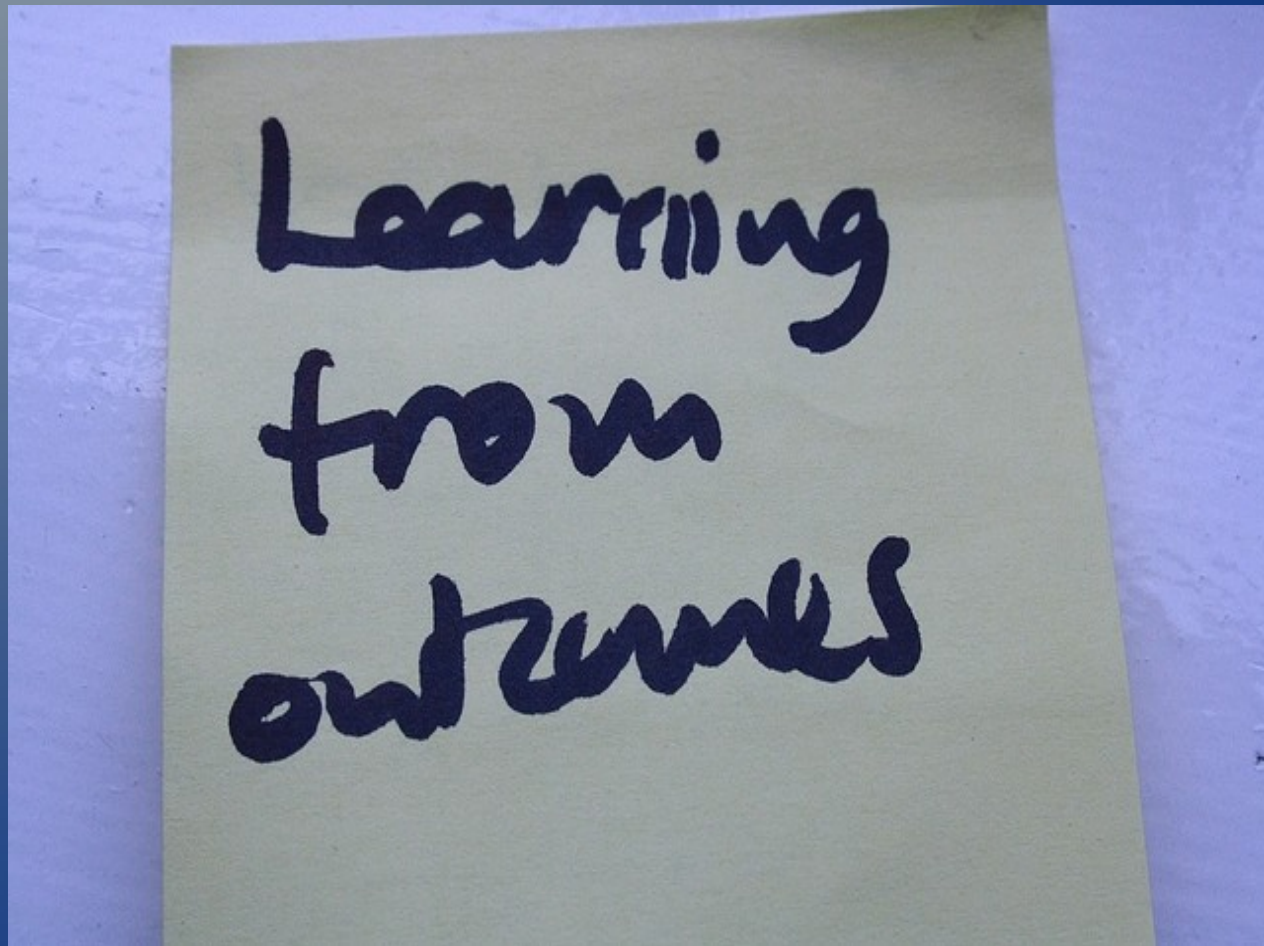 Learning
from
outcomes